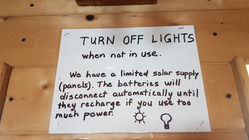 TURN OFF LIGHTS
when not in use.
We have a limited solar supply
(panels). The batteries will
disconnect automatically until
they recharge if you use too
much power.